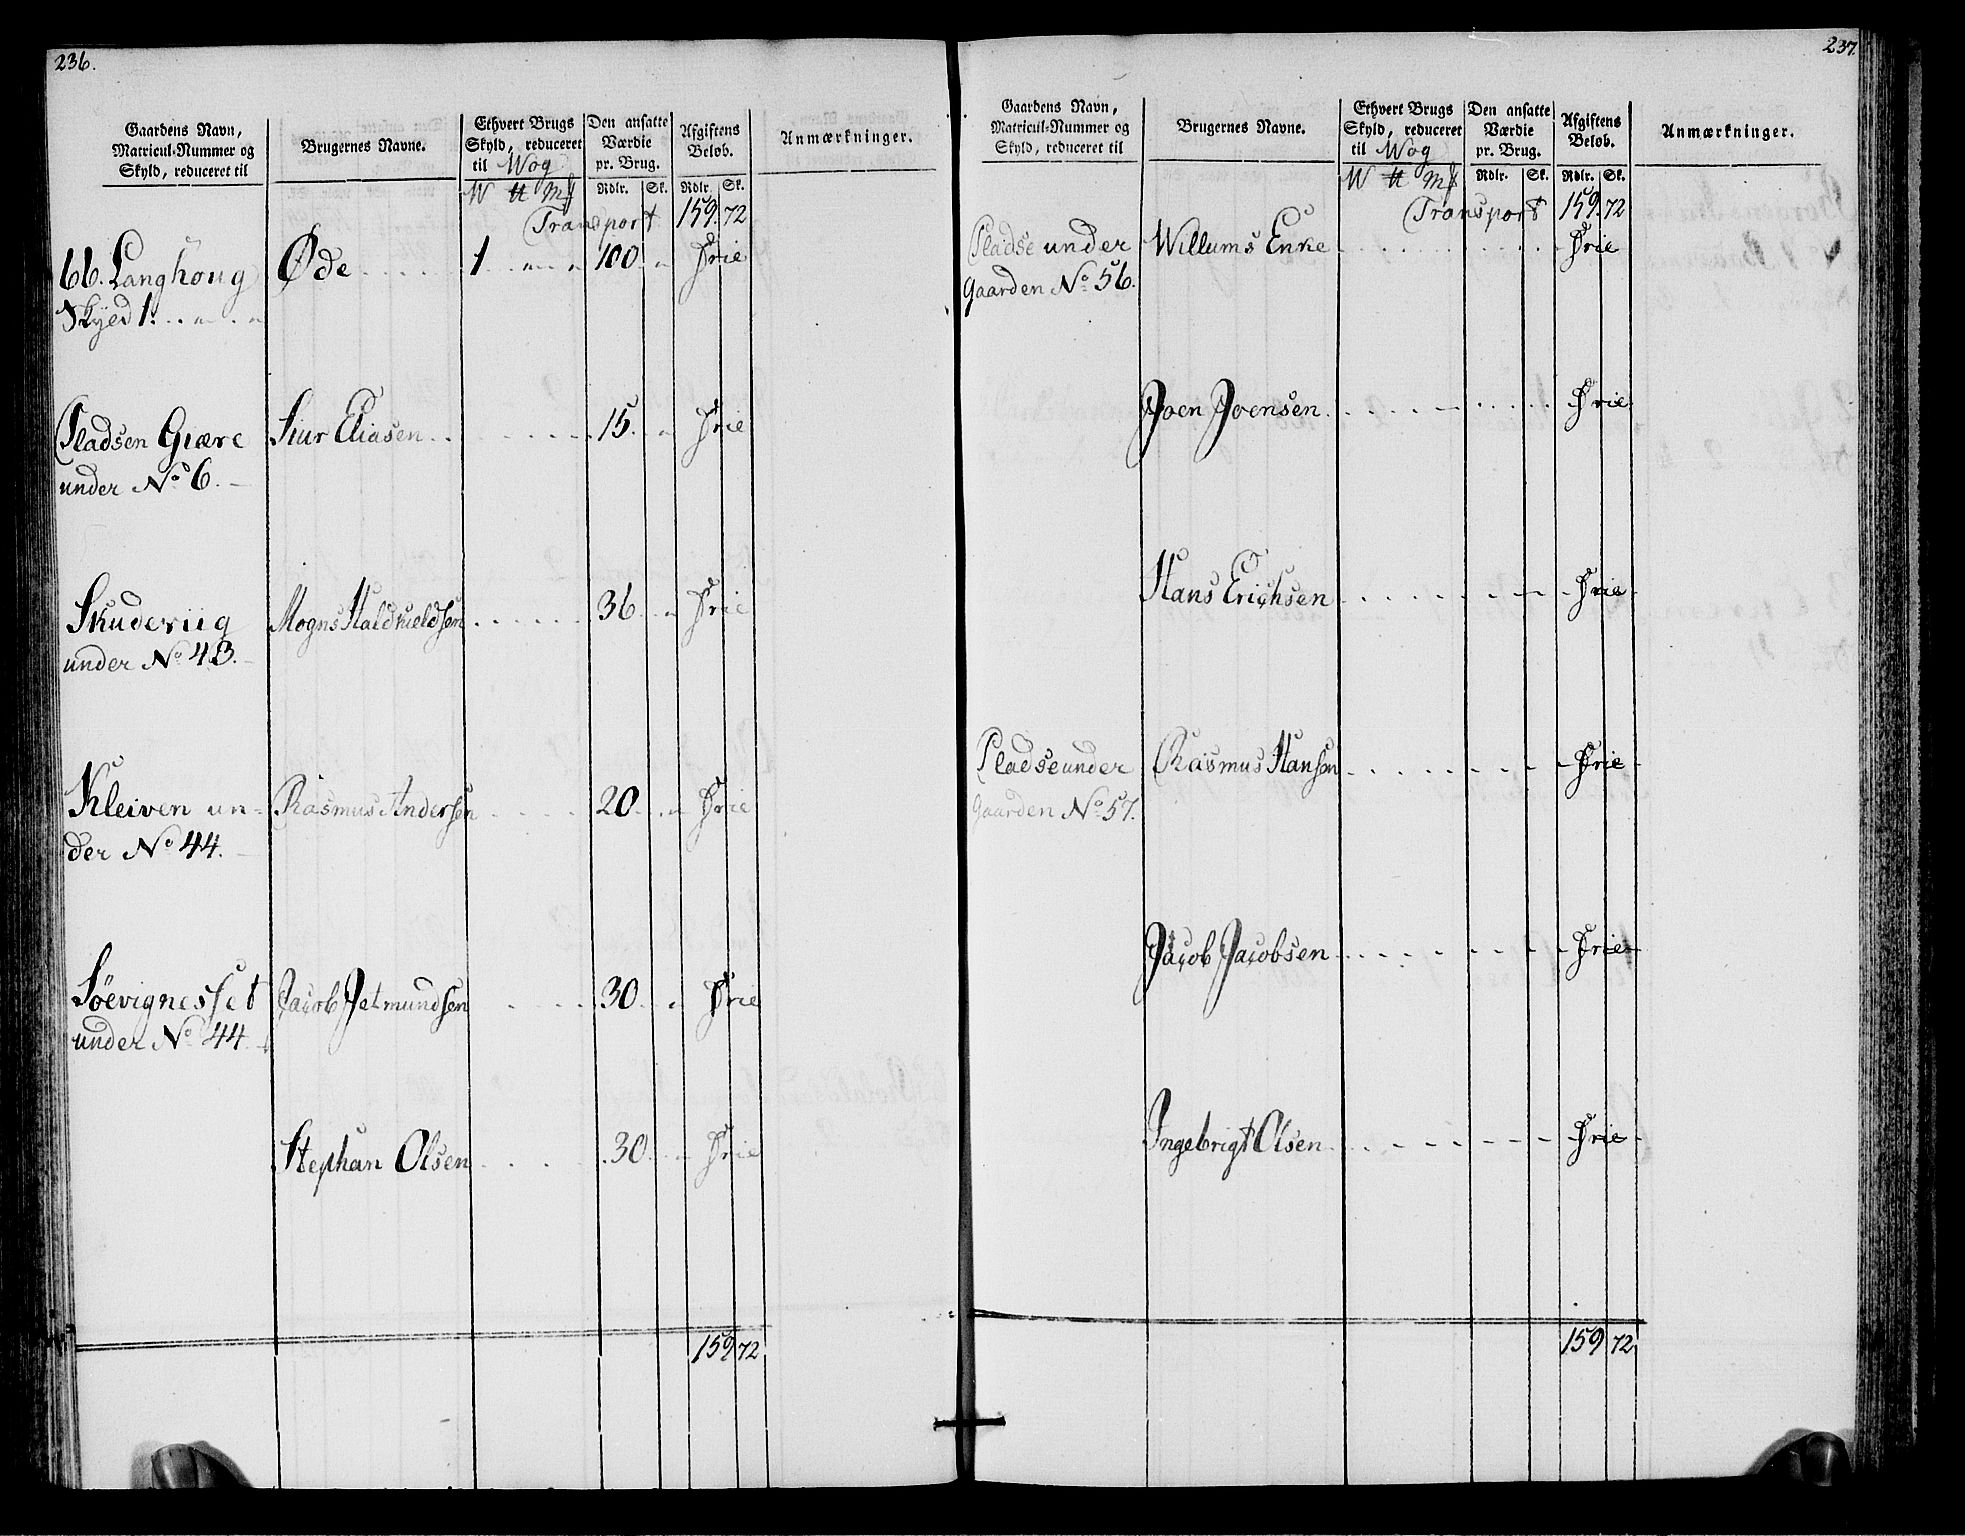 236.
Gaardens Navn, Matricul-Nummer og Skyld, reduceret til
Brugernes Navne.
Ethvert Brugs Skyld, reduceret til Wog
Den ansatte Værdie pr. Brug.
Afgiftens Beløb.
Anmærkninger.
W ℔ Mk Rdlr. Sk. Rdlr. Sk.
Transport 159. 72
66. Langhoug Øde 1 " " 100 " Frie
Skyld 1. " "
Pladsen Giære Siur Eliasen 15. " Frie
under No 6.
Skudeviig Mogns Haldkieldsen 36 " Frie
under No 43.
Kleiven un- Rasmus Andersen 20 " Frie
der No 44.
Søevignesset Jacob Jetmundsen 30 " Frie
under No 44
Stephan Olsen 30 " Frie
159 72
237.
Gaardens Navn, Matricul-Nummer og Skyld, reduceret til
Brugernes Navne.
Ethvert Brugs Skyld, reduceret til Wog
Den ansatte Værdie pr. Brug.
Afgiftens Beløb.
Anmærkninger.
W ℔ Mk Rdlr. Sk. Rdlr. Sk.
Transport 159. 72
Pladse under Willums Enke Frie
Gaarden No 56.
Joen Joensen Frie
Hans Erichsen Frie
Pladse under Rasmus Hansen Frie
Gaarden No 57.
Jacob Jacobsen Frie
Ingebrigt Olsen Frie
159 72